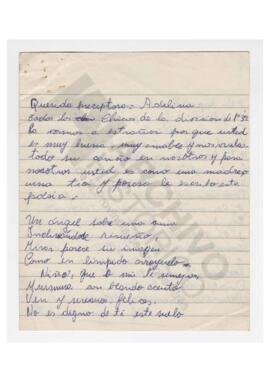 Querida preceptora: Adelina
todos los Chicos de la division de 1º 3ª
la vamos a estrañar porque usted
es muy buena, muy amable y nos
todo su cariño en nosotros y para
nosotros usted es como una madre o
una tia y por eso le escribo esta
poesia:
Un ángel sobre una cuna
Inclinándose risueño,
Mirar parece su imagen
Como en límpido arroyuelo.
Niño, que a mi te semejas
Murmura con blando acento
Ven y seremos felices.
No es digno de ti este suelo
ARCHIVO